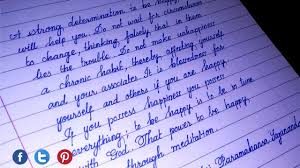 A strong determination to be happy,
will help you. Do not wait for circumstances
to change, thinking, falsely, that in them
lies the trouble. Do not make unhappiness
a chronic habit, thereby afflicting yourself
and your associates. It is blessedness for
yourself and others if you are happy.
If you possess happiness you possess
everything; to be happy is to be in tune
with God. That power to be happy
through meditation.
Paramahansa Yogananda